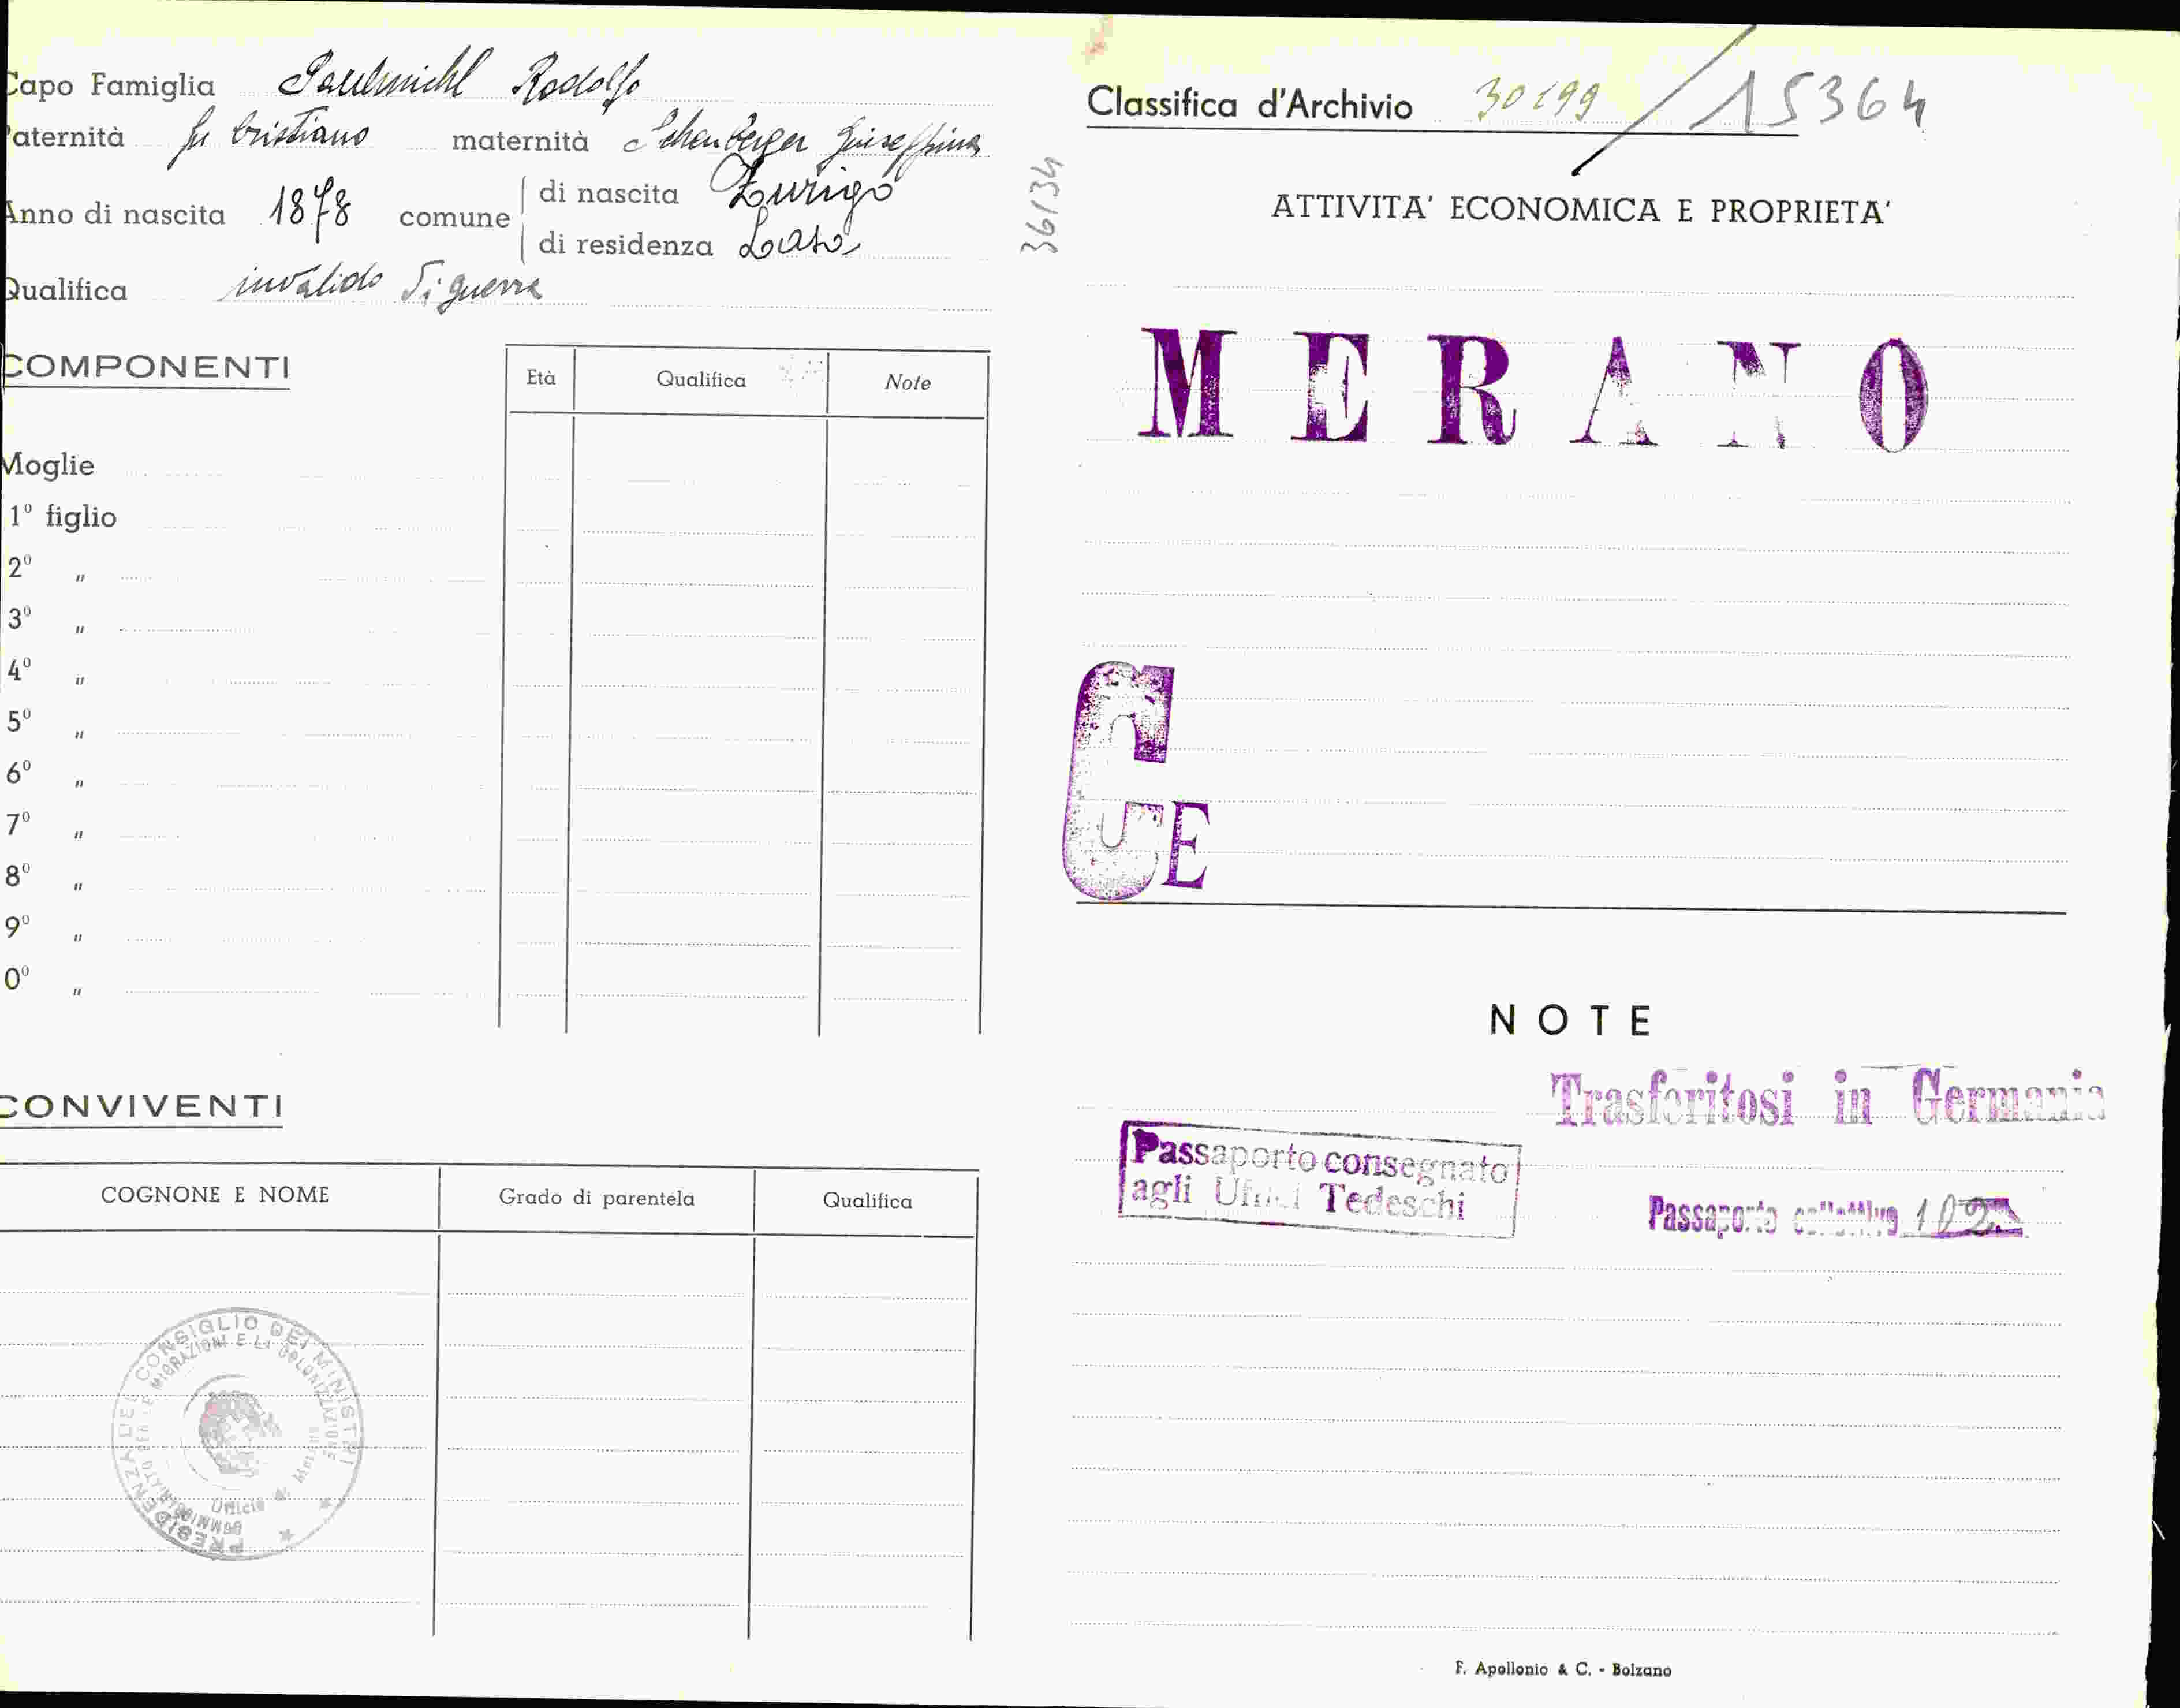 Capo Famiglia Paulmichl Rodolfo
Paternità fu Cristiano maternità Schenberger Giuseffina
Anno di nascita 1878 comune di nascita Zurigo
di residenza Laas
Qualifica invalido di guerra
COMPONENTI
Età Qualifica Note
Moglie
1º figlio
2º "
3º "
4º "
5º "
6º "
7º "
8º "
9º "
0º "
CONVIVENTI
COGNONE E NOME Grado di parentela Qualifica
PRESIDENZA DEL CONSIGLIO DEI MINISTRI
COMMISSARIATO PER LE MIGRAZIONI E LA COLONIZZAZIONE
Ufficio di Merano
36134
Classifica d'Archivio 30199 / 15364
ATTIVITA' ECONOMICA E PROPRIETA'
MERANO
CE
NOTE
Trasferitosi in Germania
Passaporto consegnato
agli Uffici Tedeschi
Passaporto collettivo 102
F. Apollonio & C. - Bolzano